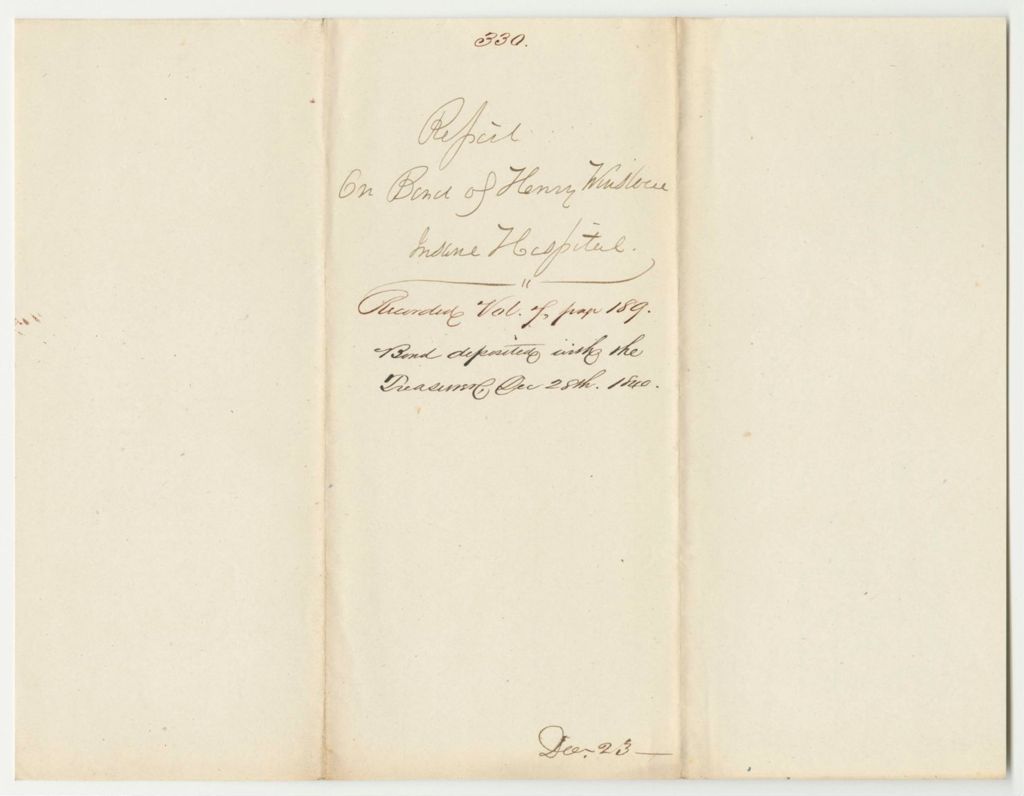 330.
Report
On Bond of Henry Winslow
Insane Hospital.
"
Recorded Vol. 7, page 189.
Bond deposited with the
Treasurer, Dec 28th. 1840.
Dec. 23 —